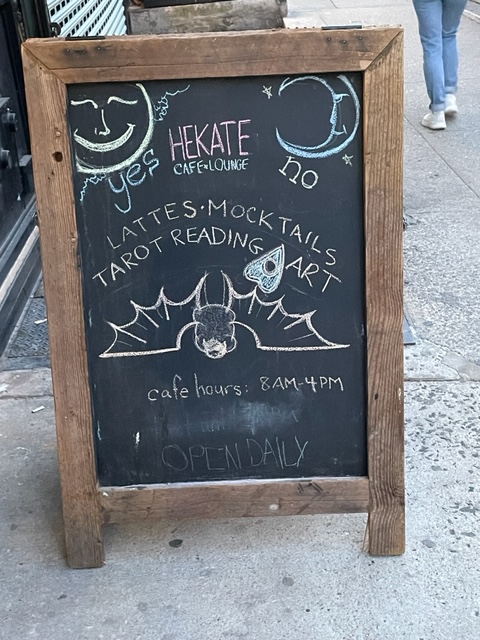 HEKATE
CAFE LOUNGE
yes
no
LATTES · MOCKTAILS
TAROT READING ART
cafe hours: 8AM-4PM
OPEN DAILY